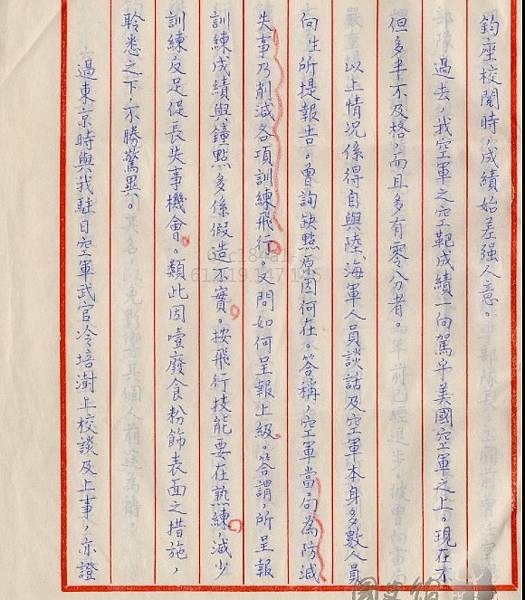 鈞座校閱時，成績始差强人意。
過去，我空軍之空靶成績一向駕乎美國空軍之上。現在不
但多半不及格，而且多有零分者。
以上情况係得自與陸海軍人員談話及空軍本身多數人員
向生所提報告。曾詢缺點原因何在。答稱，空軍當局為防減
失事乃削減各項訓練飛行。又問如何呈報上級。答謂，所呈報
訓練成績與鐘點多係假造不實。按飛行技能要在熟練，減少
訓練反足促長失事機會。類此因噎廢食粉飾表面之措施，
聆悉之下不勝驚異。
過東京時與我駐日空軍武官冷培澍上校談及上事，亦證